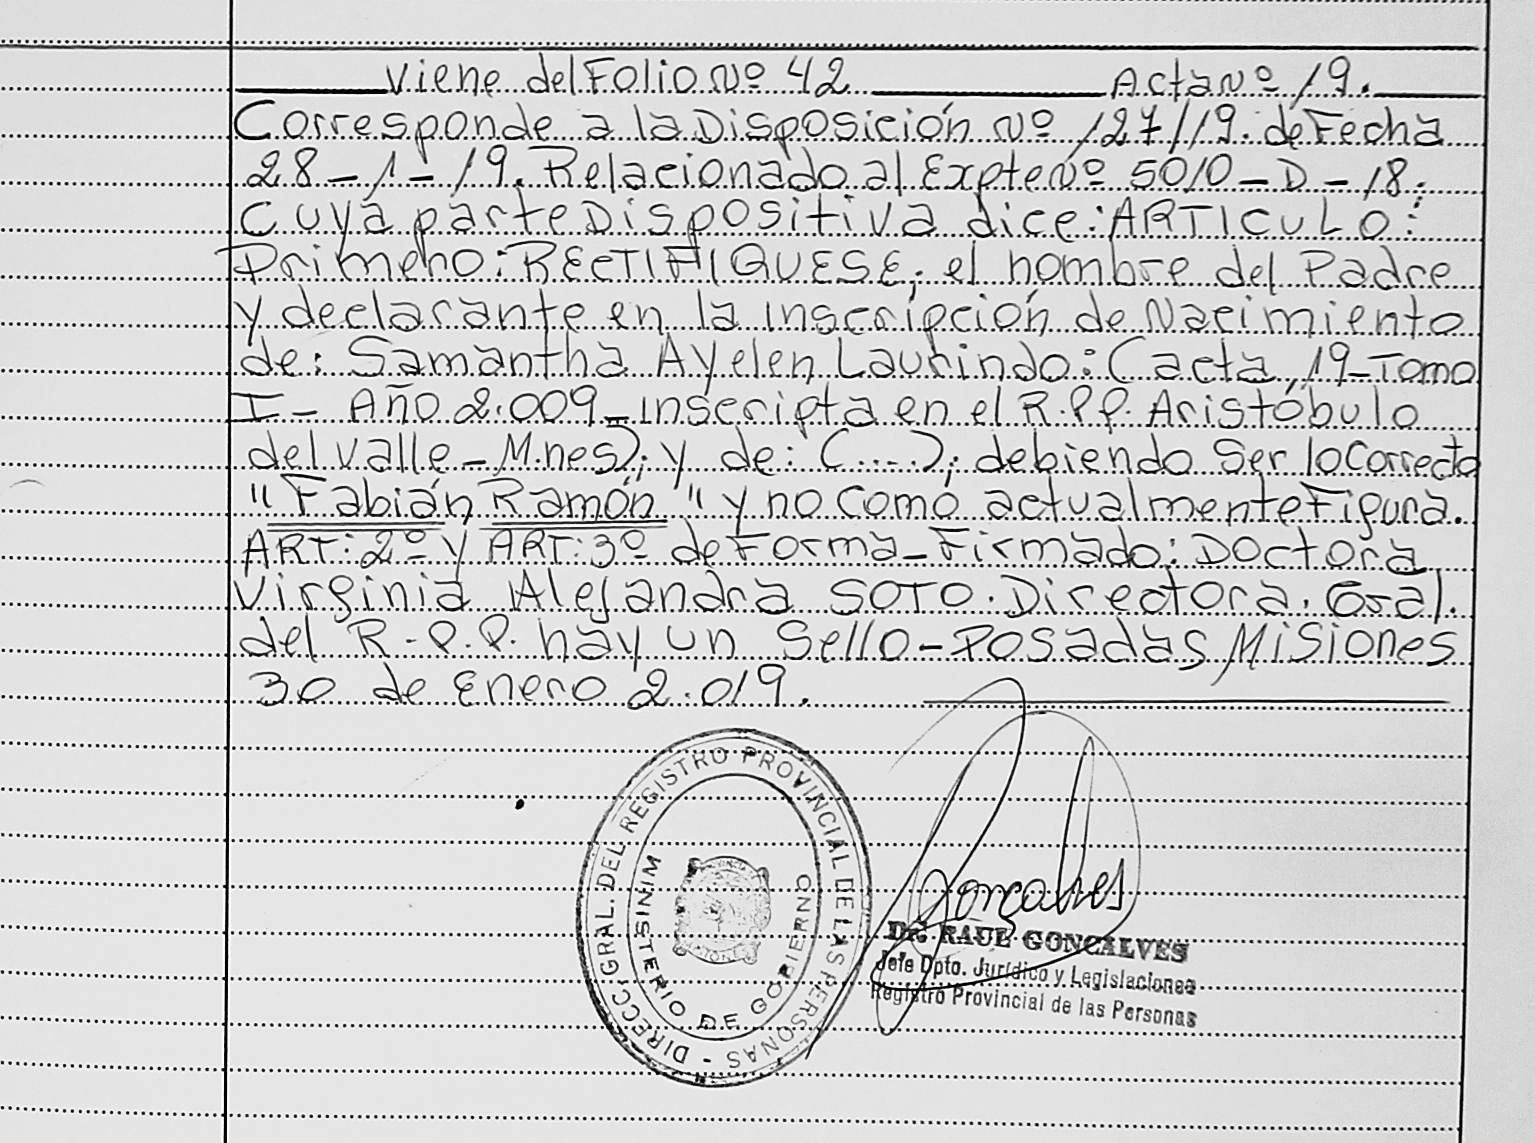 Viene del Folio Nº 42 Acta Nº 19.
Corresponde a la Disposición Nº 127/19. de Fecha
28-1-19. Relacionado al Expte Nº 5010-D-18;
cuya parte Dispositiva dice: ARTICULO:
Primero: RECTIFIQUESE; el nombre del Padre
y declarante en la Inscripción de Nacimiento
de: Samantha Ayelen Laurindo: (acta, 19-Tomo
I- Año 2.009-Inscripta en el R.P.P. Aristóbulo
del valle-M.nes); y de: (....); debiendo Ser lo Correcto
"Fabián Ramón" y no como actualmente Figura.
ART: 2º y ART: 3º de Forma-Firmado: Doctora
Virginia Alejandra SOTO. Directora. Gral.
del R-P.P. hay un Sello-Posadas Misiones
30 de Enero 2.019.
DIRECC. GRAL. DEL REGISTRO PROVINCIAL DE LAS PERSONAS -
MINISTERIO DE GOBIERNO
Gonçalves
Dr. RAUL GONCALVES
Jefe Dpto. Jurídico y Legislaciones
Registro Provincial de las Personas